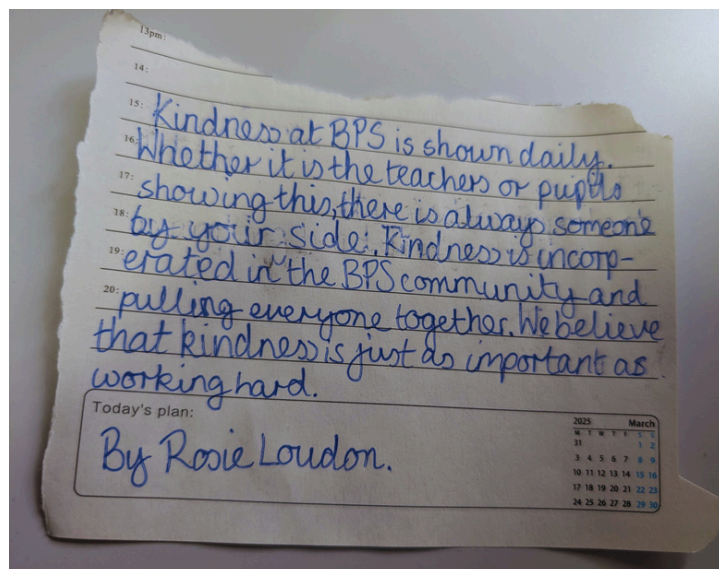 13pm:
14:
15: Kindness at BPS is shown daily.
16: Whether it is the teachers or pupils
17: showing this, there is always someone
18: by your side. Kindness is incorp-
19: erated in the BPS community and
20: pulling everyone together. We believe
that kindness is just as important as
working hard.
Today's plan:
By Rosie Loudon.
2025 March
M T W T F S S
31 1 2
3 4 5 6 7 8 9
10 11 12 13 14 15 16
17 18 19 20 21 22 23
24 25 26 27 28 29 30